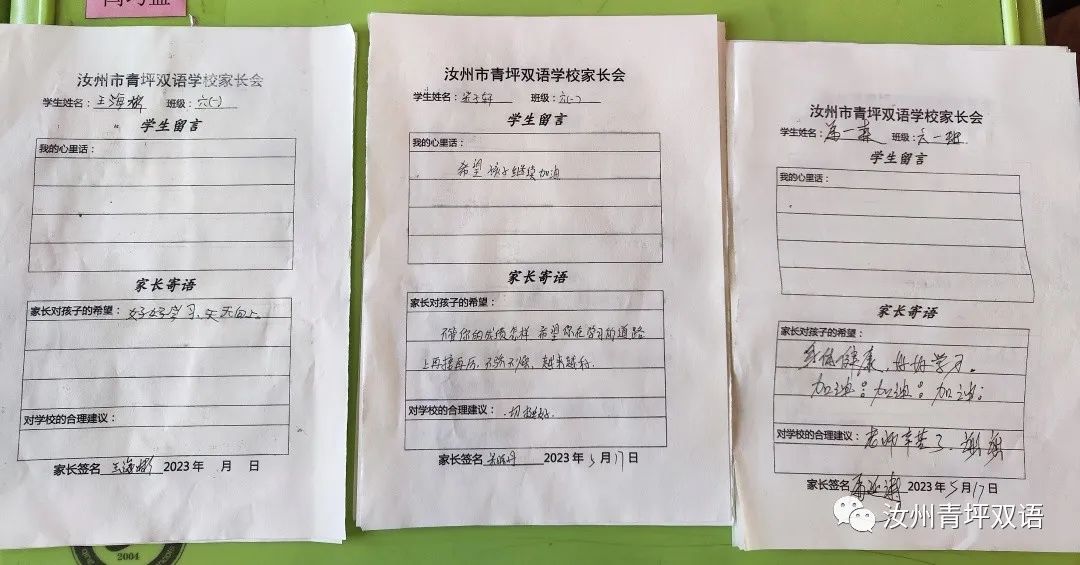 汝州市青坪双语学校家长会
学生姓名：王海 班级：六(一)
学生留言
我的心里话：
家长寄语
家长对孩子的希望：好好学习、天天向上
对学校的合理建议：
家长签名 王海 2023年 月 日
汝州市青坪双语学校家长会
学生姓名： 班级：六(一)
学生留言
我的心里话：
希望孩子继续加油
家长寄语
家长对孩子的希望：
不管你的成绩怎样 希望你在学习的道路
上再接再厉、不骄不燥、越来越好.
对学校的合理建议：一切都好.
家长签名 2023年5月17日
汝州市青坪双语学校家长会
学生姓名： 班级：六一班
学生留言
我的心里话：
家长寄语
家长对孩子的希望：
身体健康、好好学习.
加油！加油！加油！
对学校的合理建议：老师辛苦了、谢谢
家长签名 2023年5月17日
汝州青坪双语
2004